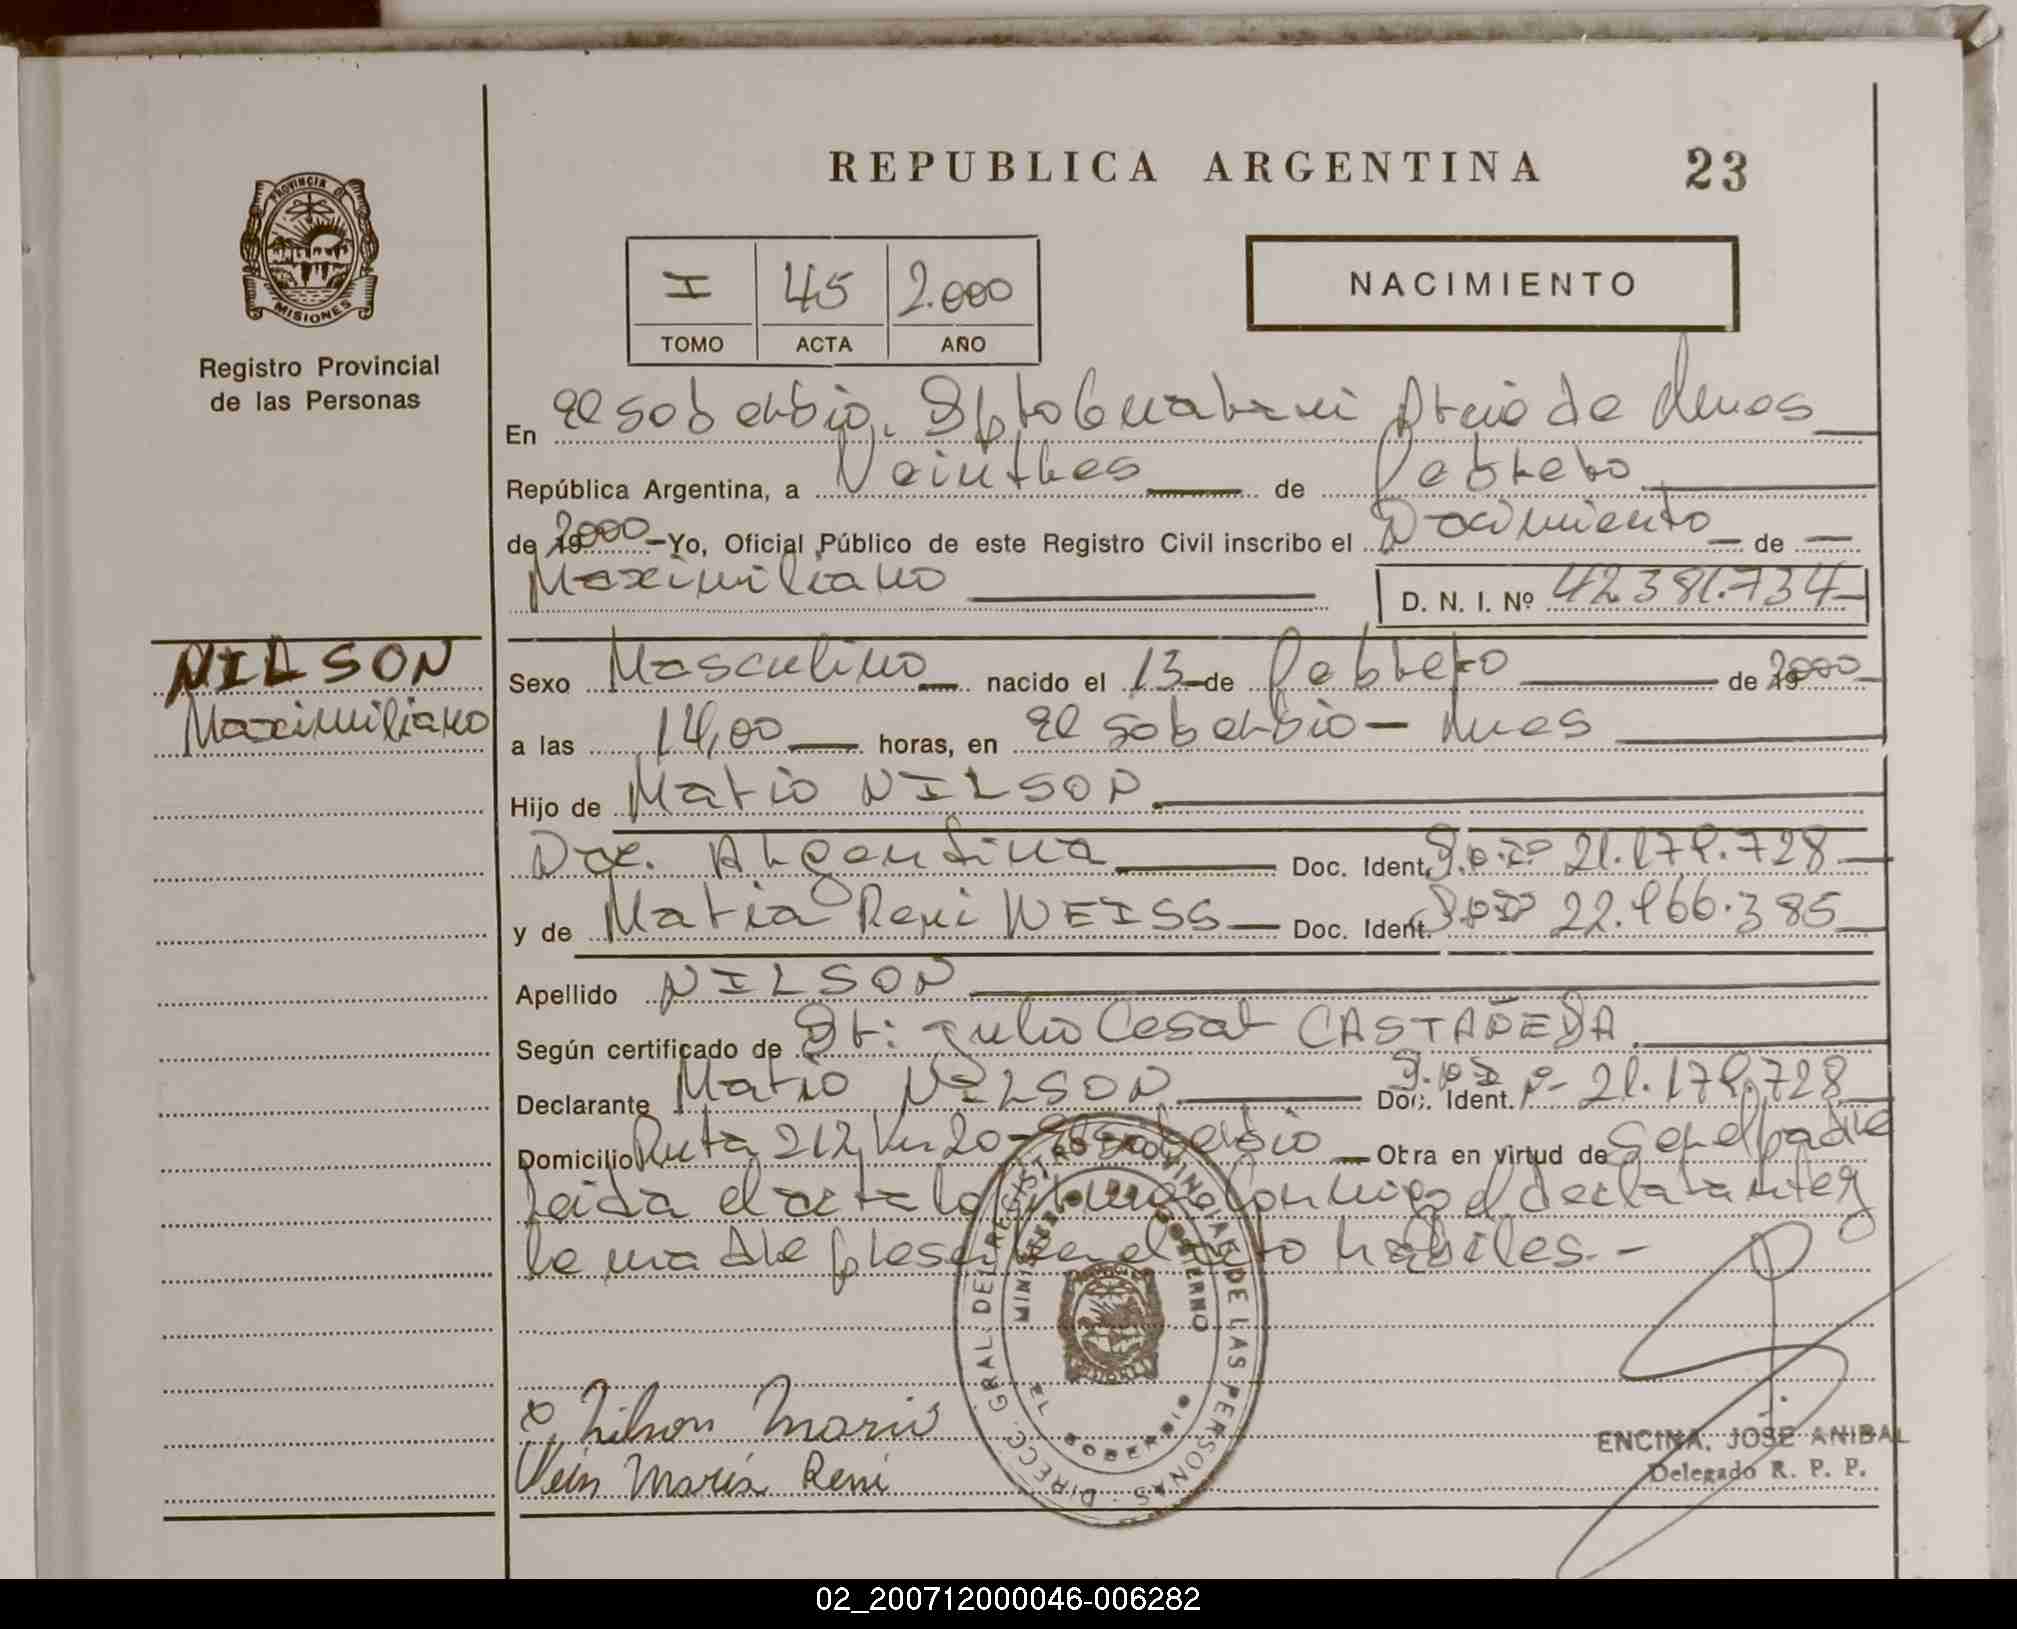 REPUBLICA ARGENTINA 23
PROVINCIA DE
MISIONES
Registro Provincial
de las Personas
I 45 2.000
TOMO ACTA AÑO
NACIMIENTO
En El soberbio, Dpto Guarani Pcia de Mnes
República Argentina, a Veintres de Febrero
de 2000 - Yo, Oficial Público de este Registro Civil inscribo el Nacimiento de
Maximiliano D. N. I. Nº 42.381.734
NILSON
Maximiliano
Sexo Masculino nacido el 13 de Febrero de 2000
a las 14,00 horas, en El soberbio - Mnes
Hijo de Mario NILSON
Nac. Argentina Doc. Ident. D.N.I Nº 21.179.728
y de Maria Reni WEISS Doc. Ident. D.N.I Nº 22.966.385
Apellido NILSON
Según certificado de Dr: Julio Cesar CASTAÑEDA
Declarante Mario NILSON Doc. Ident. D.N.I Nº 21.179.728
Domicilio Ruta 212 Km 20 - El soberbio Obra en virtud de ser el padre
Leida el acta la firma conmigo el declarante y
la madre presente en el acto habiles.-
DIRECC. GRAL. DEL REGISTRO PROVINCIAL DE LAS PERSONAS
MINISTERIO DE GOBIERNO
EL SOBERBIO
Nilson Mario
Maria Reni
ENCINA, JOSE ANIBAL
Delegado R. P. P.
02_200712000046-006282